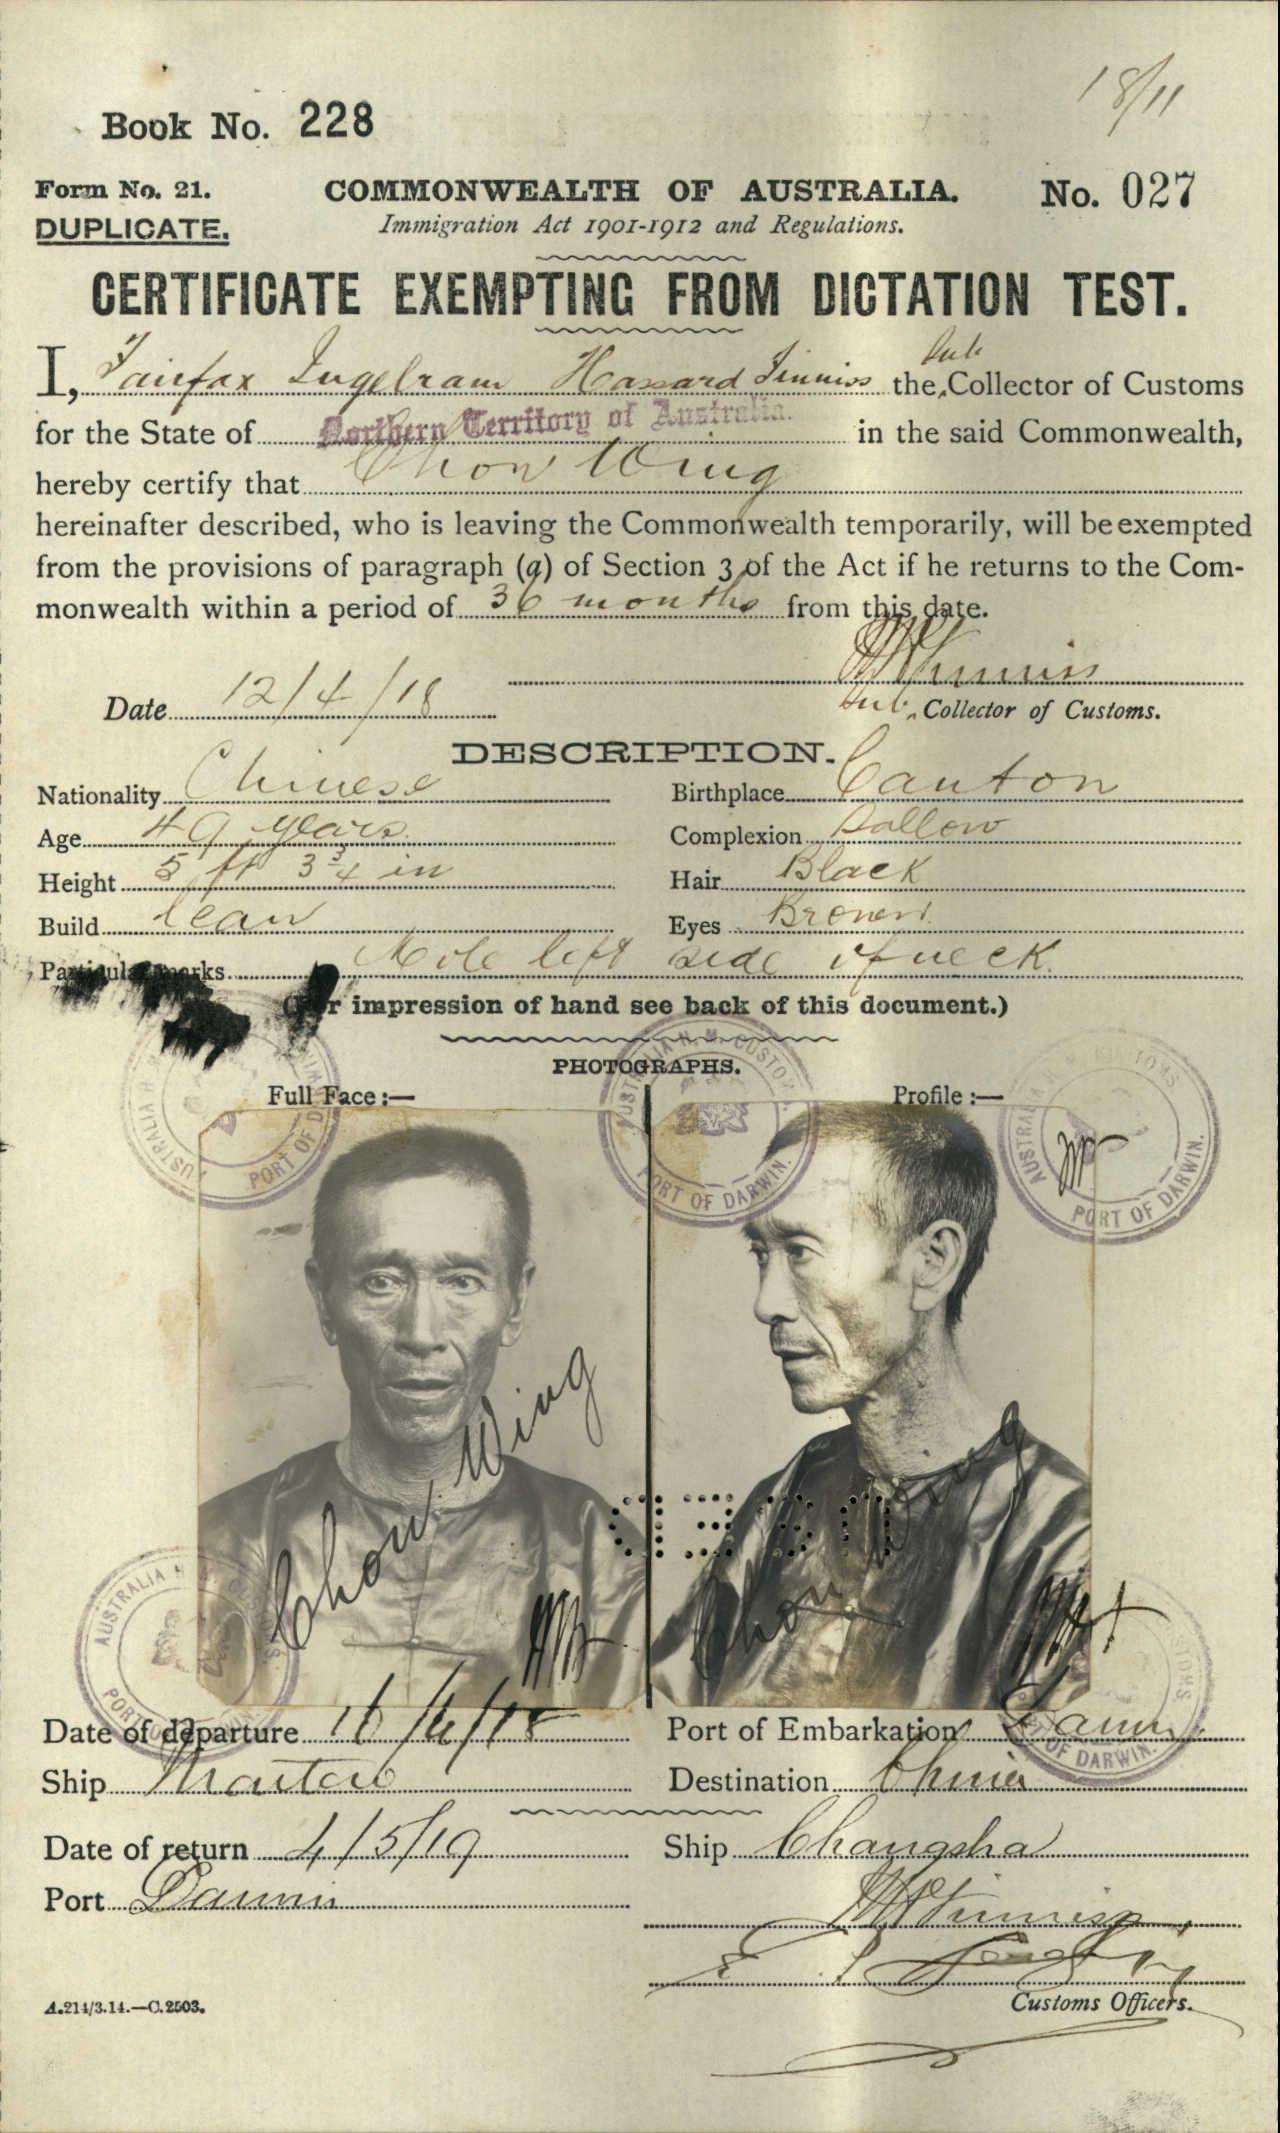 18/11
Book No. 228
Form No. 21. COMMONWEALTH OF AUSTRALIA. No. 027
DUPLICATE. Immigration Act 1901-1912 and Regulations.
CERTIFICATE EXEMPTING FROM DICTATION TEST.
I, Fairfax Ingelram Hassard Finniss the Sub Collector of Customs
for the State of Northern Territory of Australia. in the said Commonwealth,
hereby certify that Chow Wing
hereinafter described, who is leaving the Commonwealth temporarily, will be exempted
from the provisions of paragraph (a) of Section 3 of the Act if he returns to the Com-
monwealth within a period of 36 months from this date.
Finniss
Date 12/4/18 Sub. Collector of Customs.
DESCRIPTION.
Nationality Chinese Birthplace Canton
Age 49 years. Complexion Sallow
Height 5 ft 3 3/4 in Hair Black
Build lean Eyes Brown.
Particular marks Mole left side of neck.
(For impression of hand see back of this document.)
PHOTOGRAPHS.
Full Face :— Profile :—
AUSTRALIA H. M. CUSTOMS. PORT OF DARWIN.
AUSTRALIA H. M. CUSTOMS. PORT OF DARWIN.
AUSTRALIA CUSTOMS PORT OF DARWIN.
Chow Wing
Chow Wing
AUSTRALIA H. M. CUSTOMS. PORT OF DARWIN.
OF DARWIN.
Date of departure 16/4/18 Port of Embarkation Darwin
Ship Mataram Destination China
Date of return 4/5/19 Ship Changsha
Port Darwin
Finniss
A.214/3.14.—C.2503. Customs Officers.